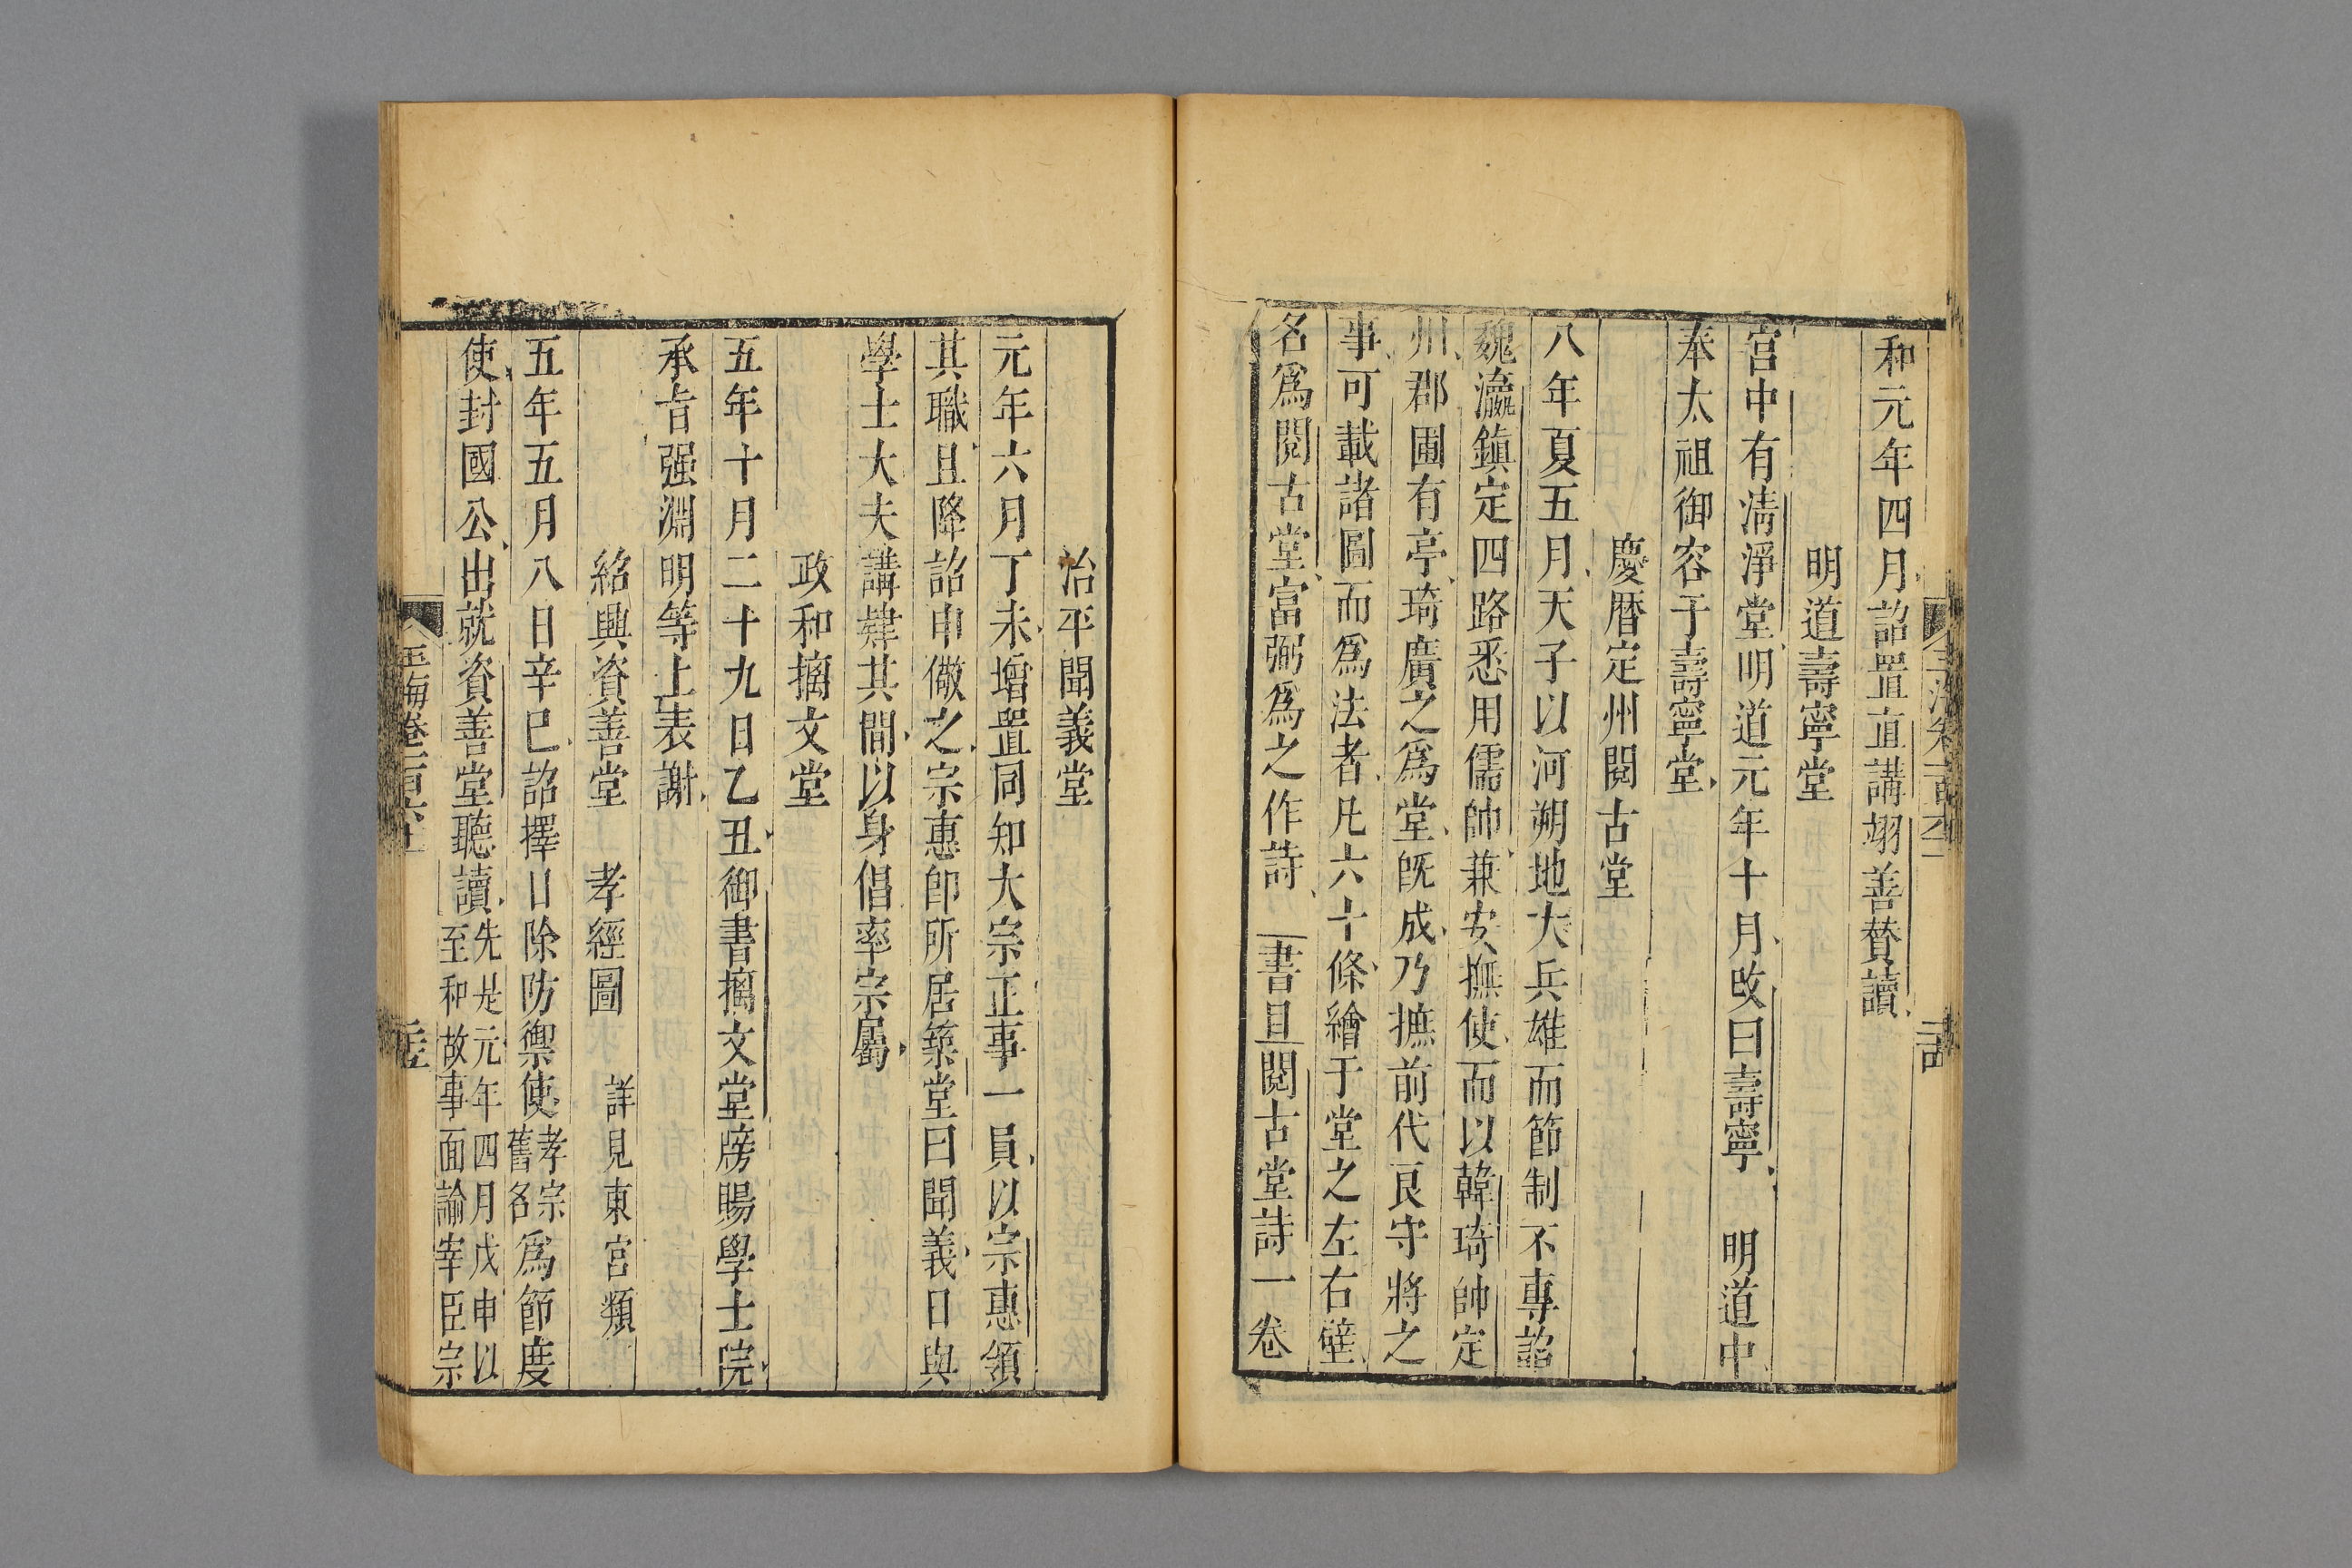 和元年四月詔置直講翊善賛讀
明道壽寧堂
宫中有清淨堂明道元年十月改曰壽寧　明道中
奉太祖御容于壽寧堂
慶曆定州閱古堂
八年夏五月天子以河朔地大兵雄而節制不專詔
魏瀛鎮定四路悉用儒帥兼安撫使而以韓琦帥定
州郡圃有亭琦廣之爲堂旣成乃摭前代良守將之
事可載諸圖而爲法者凡六十條繪于堂之左右壁
名爲閱古堂富弼爲之作詩　書目閱古堂詩一卷
治平聞義堂
元年六月丁未增置同知大宗正事一員以宗惠領
其職且降詔申儆之宗惠卽所居築堂曰聞義日與
學士大夫講肄其間以身倡率宗屬
政和摛文堂
五年十月二十九日乙丑御書摛文堂牓賜學士院
承旨强淵明等上表謝
紹興資善堂　孝經圖　詳見東宫類
五年五月八日辛巳詔擇日除防禦使孝宗舊名爲節度
使封國公出就資善堂聽讀先是元年四月戊申以至和故事面諭宰臣宗
玉海卷一百六十一